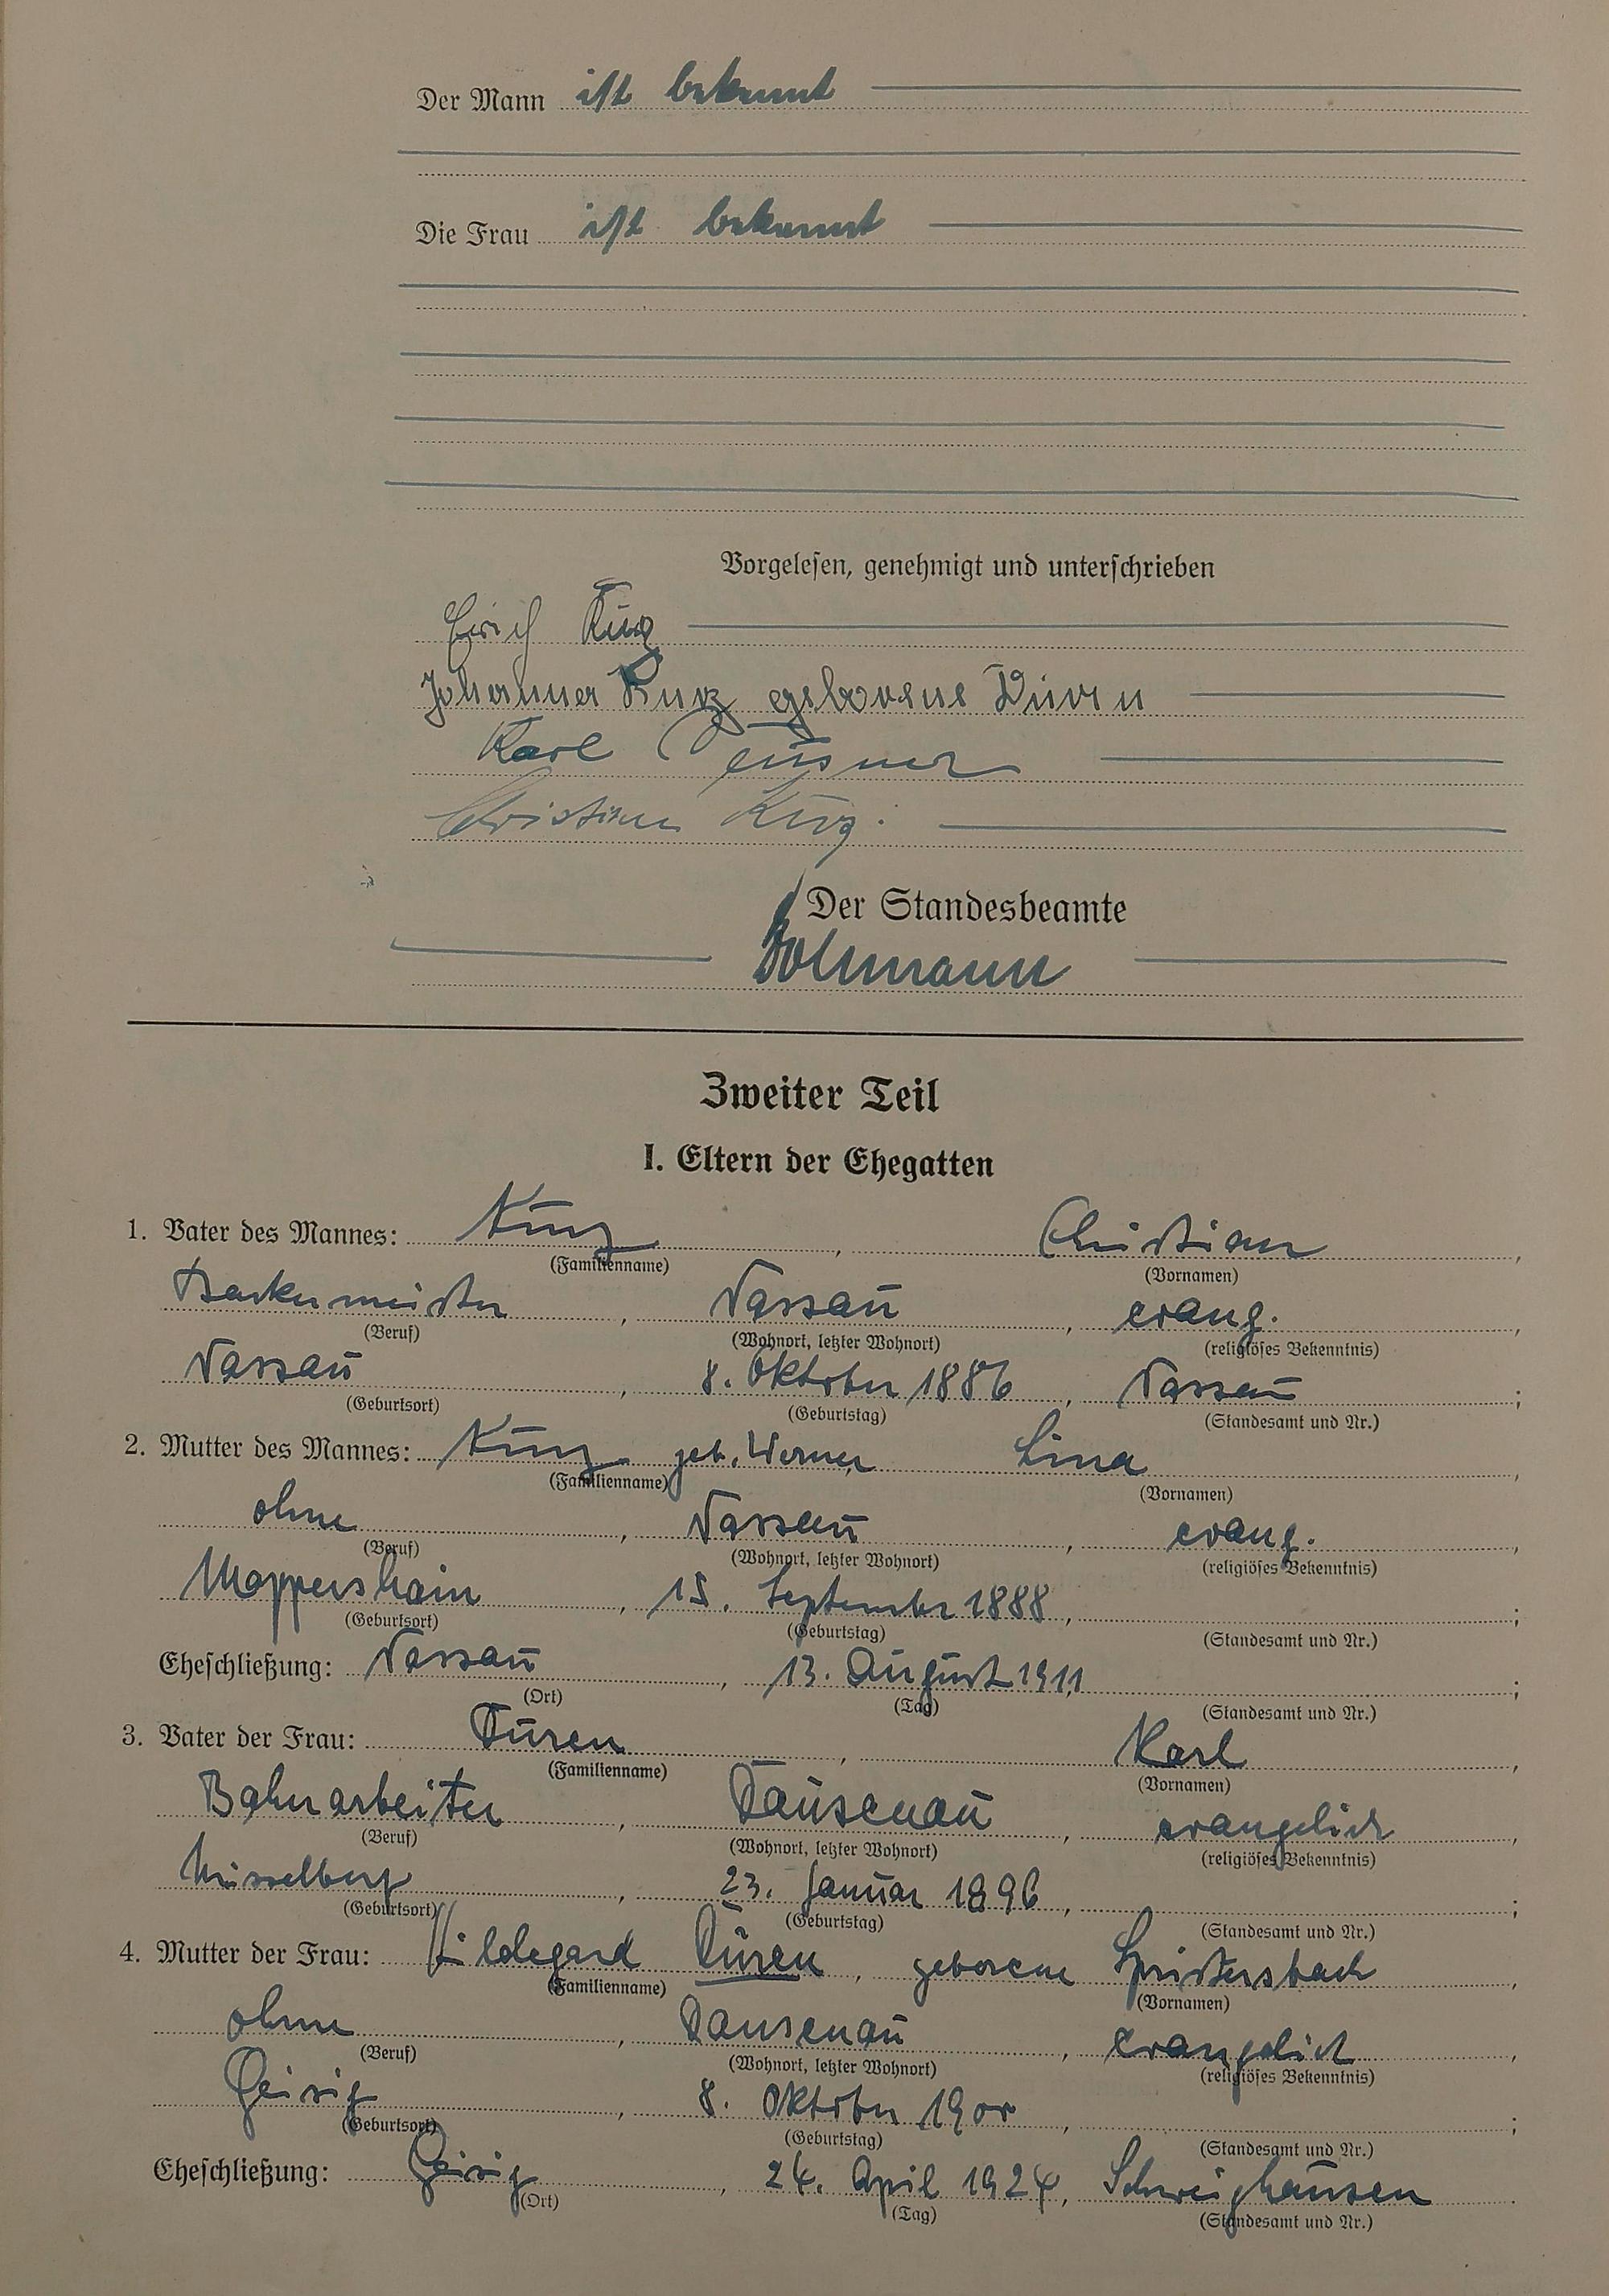 Der Mann ist bekannt
Die Frau ist bekannt
Vorgelesen, genehmigt und unterschrieben
Erich Kurz
Johanna Kurz geborene Düren
Karl
Christian Kurz.
Der Standesbeamte
Zweiter Teil
I. Eltern der Ehegatten
1. Vater des Mannes: Kurz, Christian,
(Familienname) (Vornamen)
Bäckermeister, Nassau, evang.,
(Beruf) (Wohnort, letzter Wohnort) (religiöses Bekenntnis)
Nassau, 8. Oktober 1886, Nassau;
(Geburtsort) (Geburtstag) (Standesamt und Nr.)
2. Mutter des Mannes: Kurz geb. Werner Lina,
(Familienname) (Vornamen)
ohne, Nassau, evang.,
(Beruf) (Wohnort, letzter Wohnort) (religiöses Bekenntnis)
Mappershain, 15. September 1888,;
(Geburtsort) (Geburtstag) (Standesamt und Nr.)
Eheschließung: Nassau, 13. August 1911;
(Ort) (Tag) (Standesamt und Nr.)
3. Vater der Frau: Düren, Karl,
(Familienname) (Vornamen)
Bahnarbeiter, Dausenau, evangelisch,
(Beruf) (Wohnort, letzter Wohnort) (religiöses Bekenntnis)
23. Januar 1896,;
(Geburtsort) (Geburtstag) (Standesamt und Nr.)
4. Mutter der Frau: Hildegard Düren, geborene Spriestersbach,
(Familienname) (Vornamen)
ohne, Dausenau, evangelisch,
(Beruf) (Wohnort, letzter Wohnort) (religiöses Bekenntnis)
Geisig, 8. Oktober 1900,;
(Geburtsort) (Geburtstag) (Standesamt und Nr.)
Eheschließung: Geisig, 24. April 1924, Schweighausen.
(Ort) (Tag) (Standesamt und Nr.)